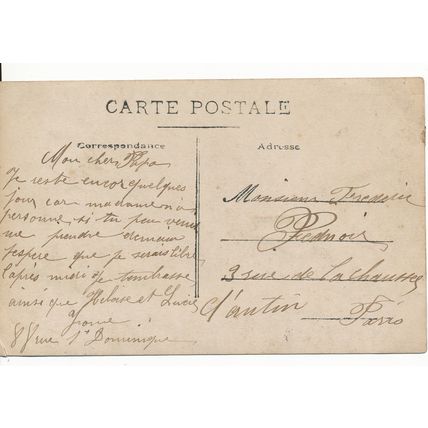 CARTE POSTALE
Correspondance
Adresse
Mon cher Papa
Je reste encor quelques
jour car madame n'a
personne, si tu peu venir
me prendre demain
j'espère que je serais libre
l'après midi Je t'embrasse
ainsi que et Lucie
8 rue St Dominique
Monsieur Frederic
3 rue de la Chaussee
d'antin Paris